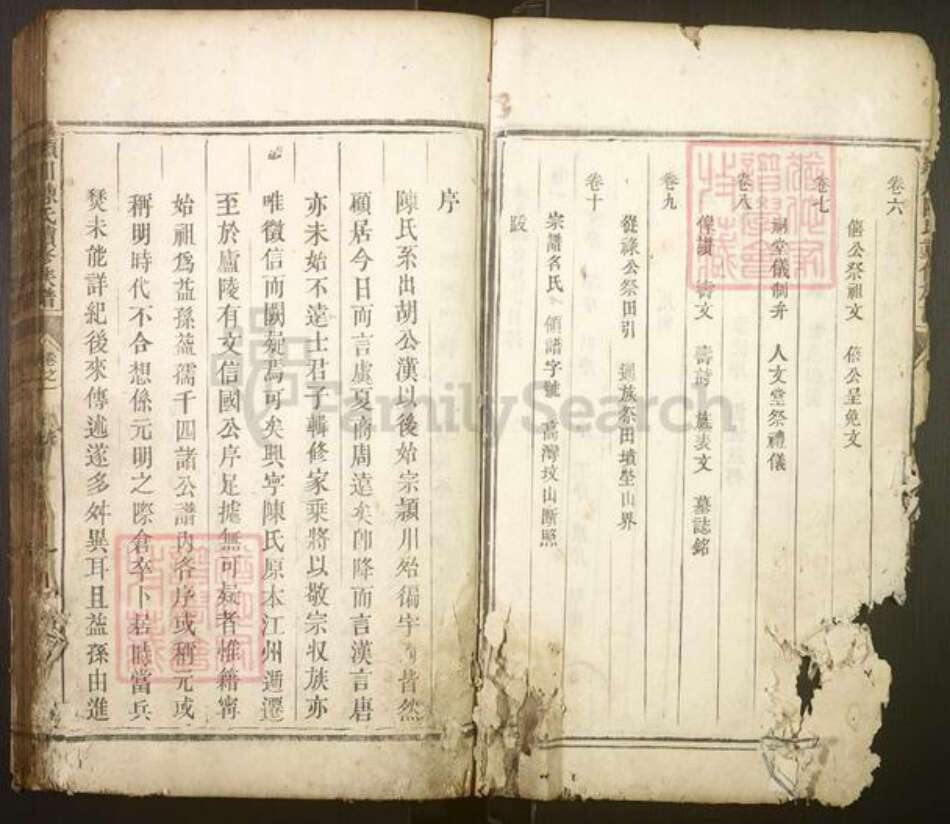 卷六
僖公祭祖文 僖公呈免文
卷七
祠堂儀制弁 人文堂祭禮儀
卷八
像讚 壽文 壽詩 旌表文 墓誌銘
卷九
從祿公祭田引 通族祭田墳塋山界
卷十
宗譜名氏 領譜字號 高灣坟山斷照
跋
序
陳氏系出胡公漢以後始宗潁川殆徧宇 皆然
顧居今日而言虞夏商周遠矣卽降而言漢言唐
亦未始不遠士君子輯修家乘將以敬宗収族亦
唯徵信而闕疑焉可矣興宁陳氏原本江州遞遷
至於廬陵有文信國公序足據無可疑者惟籍甯
始祖爲益孫益孺千四諸公譜內各序或稱元或
稱明時代不合想係元明之際倉卒卜居時當兵
燹未能詳紀後來傳述遂多舛異耳且益孫由進
FamilySearch